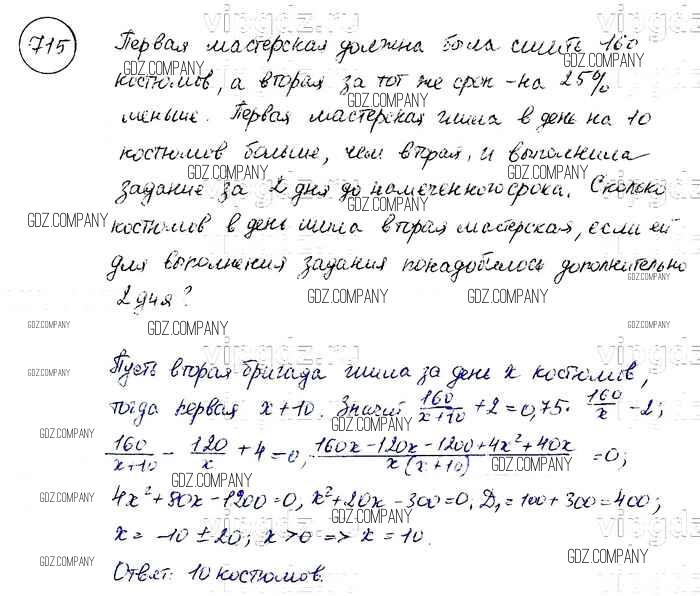 715
Первая мастерская должна была сшить 160
костюмов, а вторая за тот же срок - на 25%
меньше. Первая мастерская шила в день на 10
костюмов больше, чем вторая, и выполнила
задание за 2 дня до намеченного срока. Сколько
костюмов в день шила вторая мастерская, если ей
для выполнения задания понадобилось дополнительно
2 дня?
Пусть вторая бригада шила за день x костюмов,
тогда первая x+10. Значит 160/(x+10) + 2 = 0,75 · 160/x - 2;
160/(x+10) - 120/x + 4 = 0, (160x - 120x - 1200 + 4x² + 40x)/(x(x+10)) = 0;
4x² + 80x - 1200 = 0, x² + 20x - 300 = 0. D₁ = 100 + 300 = 400;
x = -10 ± 20; x > 0 => x = 10.
Ответ: 10 костюмов.
GDZ.COMPANY
vipgdz.ru